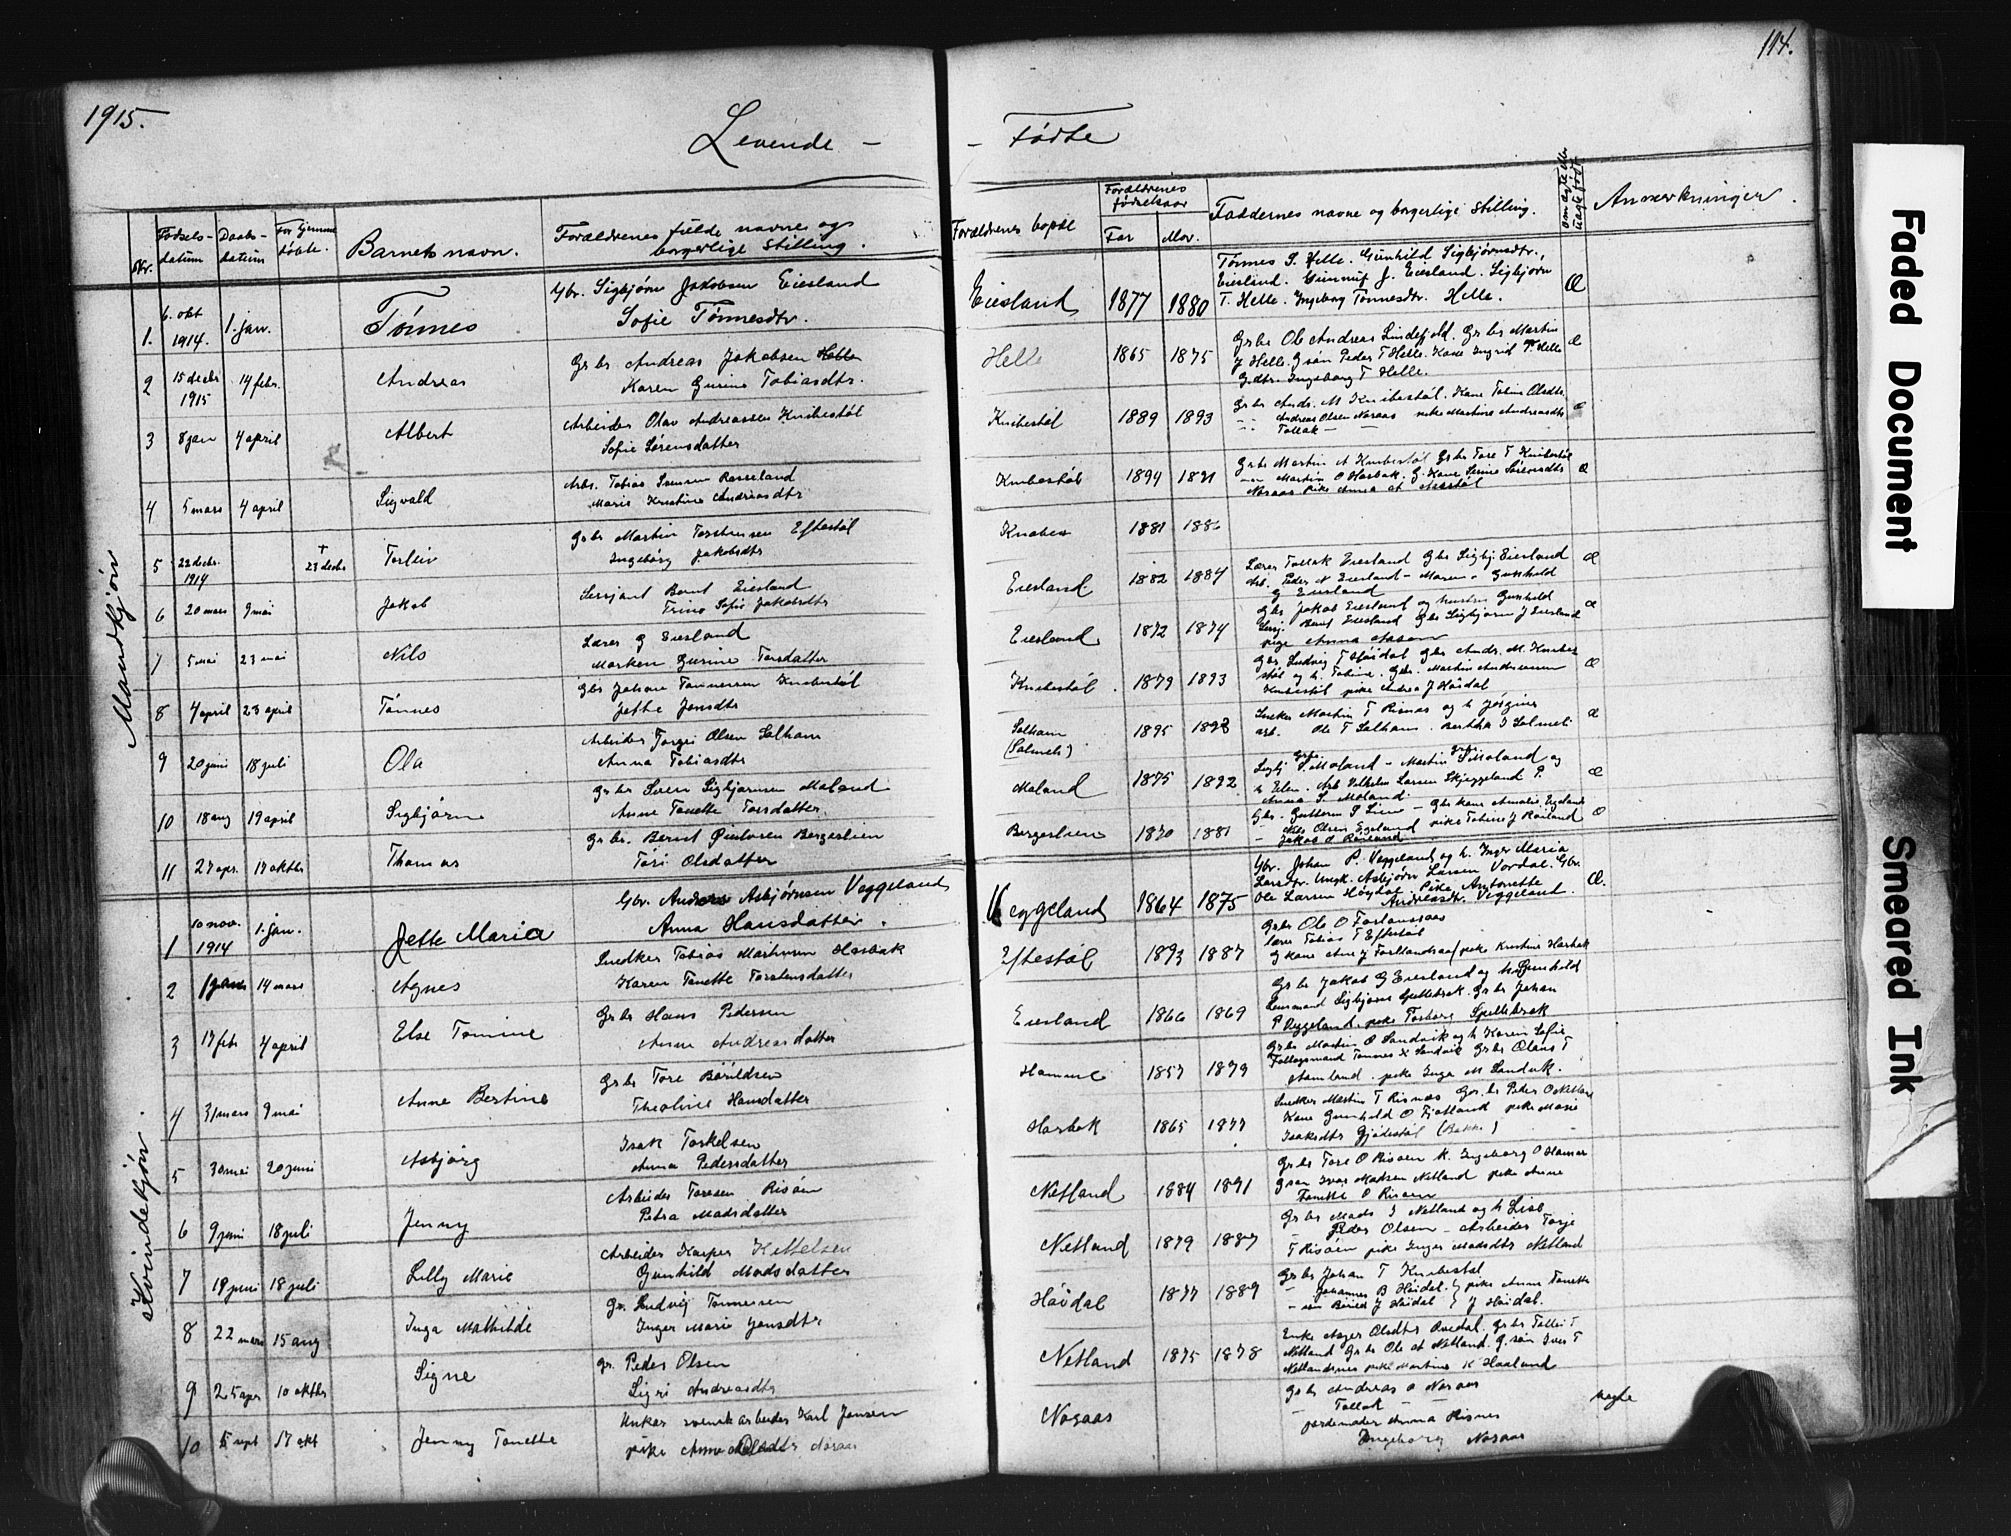 1915.
114.
Levende -
- Fødte
Nr.
Fødsels-
datum
Daabs-
datum
For hjemme
døbte.
Barnets navn.
Forældrenes fulde navne og
borgerlige stilling.
Forældrenes bopæl
Forældrenes
fødselsaar
Far
Mor.
Faddernes navne og borgerlige stilling.
om ægte eller
uægte født.
Anmerkninger.
Mandkjøn
1. 6. okt 1914. 1. jan. Tønnes
Gbr. Sigbjørn Jakobsen Eiesland
Sofie Tønnesdtr.
Eiesland 1877 1880
Tønnes S. Helle. Gunhild Sigbjørnsdtr.,
Eiesland. Gunnuf J. Eiesland. Sigbjørn
T. Helle. Ingeborg Tønnesdtr. Helle. Æ
2 15 decbr 1915 14 febr. Andreas
Grbr Andreas Jakobsen Helle
Karen Gurine Tobiasdtr.
Helle 1865 1875
Grbr Ole Andreas Lindefjeld. Grbr Martin
J Helle. G søn Peder T Helle. Kone Ingrid P. Helle
G.dtr. Ingeborg T Helle. Æ
3 8 jan 4 april Albert
Arbeider Olav Andreassen Knibestøl
Sofie Sørensdatter
Knibestøl 1889 1893
Grbr Andr. M Knibestøl. Kone Tobine Olsdtr.
Andreas Olsen Nosaas pike Martine Andreasdtr
Tollak Æ
4 5 mars 4 april Sigvald
Arb. Tobias Svensen Rosseland
Marie Kristine Andreasdtr
Knibestøl 1894 1891
Grbr Martin A Knibestøl Grbr Tore T Knibestøl
Martin O Harbak. G. Kone Serine Sørensdtr
Nosaas pike Anna Æ
5 22 decbr. 1914 + 23 decbr Torleiv
Grbr Martin Torstensen Eftestøl
Ingeborg Jakobsdtr
Knaben 1881 1886
6 20 mars 9 mai Jakob
Sersjant Bernt Eiesland
Trine Sofie Jakobsdtr
Eiesland 1882 1884
Lærer Tollak Eiesland Gbr Sigbj. Eiesland
Arb. Peder N Eiesland - Maren - Gunhild
G Eiesland Æ
7 5 mai 23 mai Nils
Lærer G Eiesland
Marken Gurine Torsdatter
Eiesland 1872 1874
Gbr Jakob Eiesland og hustru Gunhild
Sersj. Bernt Eiesland Gbr Sigbjørn J Eiesland
pige Anna Aasen Æ
8 4 april 23 april Tønnes
Gbr Johan Tønnessen Knibestøl
Jette Jensdtr
Knibestøl 1879 1893
Gbr. Ludvig T Høidal Gbr Andr. M. Knibe
støl og h. Tobine. Gbr. Martin Andreassen
Knibestøl pike Andrea J Høidal Æ
9 20 juni 18 juli Ola
Arbeider Torgei Olsen Salham
Anna Tobiasdtr
Salham
(Salmeli) 1895 1893
Snekker Martin T Risnes og h Jørgine
arb. Ole T Salham. Bertha S Salmeli Æ
10 18 aug 19 april Sigbjørn
Grbr Søren Sigbjørnsen Moland
Anne Tonette Torsdatter
Moland 1875 1892
Sigbj S Moland - Martin S Moland og
h Elen. Arb Vilhelm Larsen Skjeggeland P.
Anna S. Moland Æ
11 27 apr. 17 oktbr Thomas
Grbr. Bernt Bergeslien
Tori Olsdatter
Bergeslien 1870 1881
Gbr. Guttorm S Lien - Gbr Kone Amalie Egeland
Nils Olsen Eggeland pike Tobine J Røiland
Jakob O Røiland Æ
Kvindekjøn.
1 10 nov. 1914 1. jan. Jette Maria
Gbr. Anders Asbjørnsen Veggeland
Anna Hansdatter.
Veggeland 1864 1875
Gbr. Johan P. Veggeland og h. Inger Maria
Larsdtr. Ungk. Asbjørn Larsen Vordal. Gbr.
Ole Larsen Høydal. Pike Antonette
Andreasdtr. Veggeland. Æ.
2 1 jan 14 mars Agnes
Snedker Tobias Martinsen Harbak
Karen Tonette Torstensdatter
Eftestøl 1893 1887
Grbr Ole O Forlandsaas
lærer Tobias T Eftestøl
G kone Ane J Forlandsaas pike Kristine Harbak
3 17 febr 4 april Else Tomine
Grbr Hans Pedersen
Anne Andreasdatter
Eiesland 1866 1869
Grbr Jakob G Eiesland og h Gunhild
Lensmand Sigbjørn Spellebrok. Grbr Johan
P Veggeland. pike Torborg Spillebrok
4 31 mars 9 mai Anne Bertine
Grbr Tore Bårildsen
Theoline Hansdatter
Homme 1857 1879
Grbr Martin O Sandvik og h Karen Sofie
Follagsmand Tønnes K Sandvik Grbr Olaus T
pike Inga M Sandvik.
5 30 mai 20 juni Asbjørg
Isak Torkelsen
Anna Pedersdatter
Harbak 1865 1877
Snedker Martin T Risnes Grbr Peder O Netland
Kone Gunhild O Fjotland pike Marie
Isaksdtr Gjødestøl (Bakke)
6 9 juni 18 juli Jenny
Arbeider Toresen Risøen
Petra Madsdatter
Netland 1884 1891
Grbr Tore O Risøen K. Ingeborg O Homme
G søn Ivar Madsen Netland pike Anne
Tonette O Risøen
7 19 juni 18 juli Lilly Marie
Arbeider Kasper Kittelsen
Gunhild Madsdatter
Netland 1879 1887
Grbr Mads I Netland og h Lise
- Peder Olsen - Arbeider Torje
T Risøen pike Inger Madsdtr Netland
8 22 mars 15 aug Inga Mathilde
Gr. Ludvig Tønnessen
Inger Marie Jensdtr
Høidal 1877 1889
Grbr Johan T Knibestøl
- Johannes B Høidal. } pike Anne Tonette
- søn J Høidal } J Høidal.
9 25 apr 10 oktbr Signe
Gr. Peder Olsen
Sigri Andreasdtr
Netland 1875 1878
Enke Asger Olsdtr Kvedal. Grbr Tollei T
Netland Grbr Ole A Netland. G. søn Iver T
Netlandsnes pike Martine K Haaland
10 5 sept 17 okt Jenny Tonette
Unkar svensk arbeider Karl Jensen
pike Anne Olsdtr Nosaas
Nosaas
Grbr Andreas O Nosaas
- Tollak -
jordemoder Anna Risnes
Ingeborg Nosaas
uægte
Faded Document
Smeared Ink